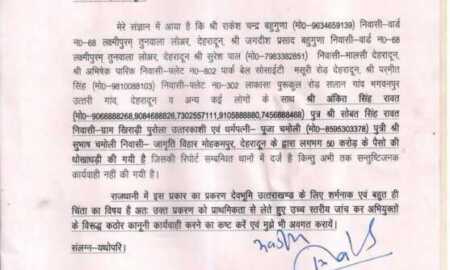 मेरे संज्ञान में आया है कि श्री राकेश चन्द्र बहुगुणा (मो0-9634659139) निवासी-वार्ड
न0-68 लक्ष्मीपुरम् तुनवाला लोअर, देहरादून, श्री जगदीश प्रसाद बहुगुणा निवासी-वार्ड न0-68
लक्ष्मीपुरम् तुनवाला लोअर देहरादून श्री सुरेश पाल (मो0-7983382851) निवासी-मालसी देहरादून,
श्री अभिषेक पारिक निवासी-फ्लेट न0-802 पार्क बेल सोसाईटी मसूरी रोड देहरादून, श्री परमीत
सिंह (मो0-9810088103) निवासी-फ्लेट न0-302 लाकासा पुरूकूल रोड सालान गांव भगवनपुर
उत्तरी गांव, देहरादून व अन्य कई लोगों के साथ श्री अंकित सिंह रावत
(मो0-9068888268,9084686928,7302557111,9105888880,7456888468) पुत्र श्री सोबत सिंह रावत
निवासी-ग्राम खिराड़ी पुरोला उत्तरकाशी एवं धर्मपत्नी- पूजा चमोली (मो0-8595303378) पुत्री श्री
सुभाष चमोली - जागृति विहार मोहकमपुर, देहरादून के द्वारा लगभग 50 करोड़ के पैसों की
धोखाधड़ी की गयी है जिसकी रिपोर्ट सम्बन्धित थानों में दर्ज है किन्तु अभी तक सन्तुष्टिजनक
कार्यवाही नहीं की गयी है।
राजधानी में इस प्रकार का प्रकरण देवभूमि उत्तराखण्ड के लिए शर्मनाक एवं बहुत ही
चिंता का विषय है अतः उक्त प्रकरण को प्राथमिकता से लेते हुए उच्च स्तरीय जांच कर अभियुक्तों
के विरूद्ध कठोर कानूनी कार्यवाही करने का कष्ट करें एवं मुझे भी अवगत करायें।
संलग्न-यथोपरि।